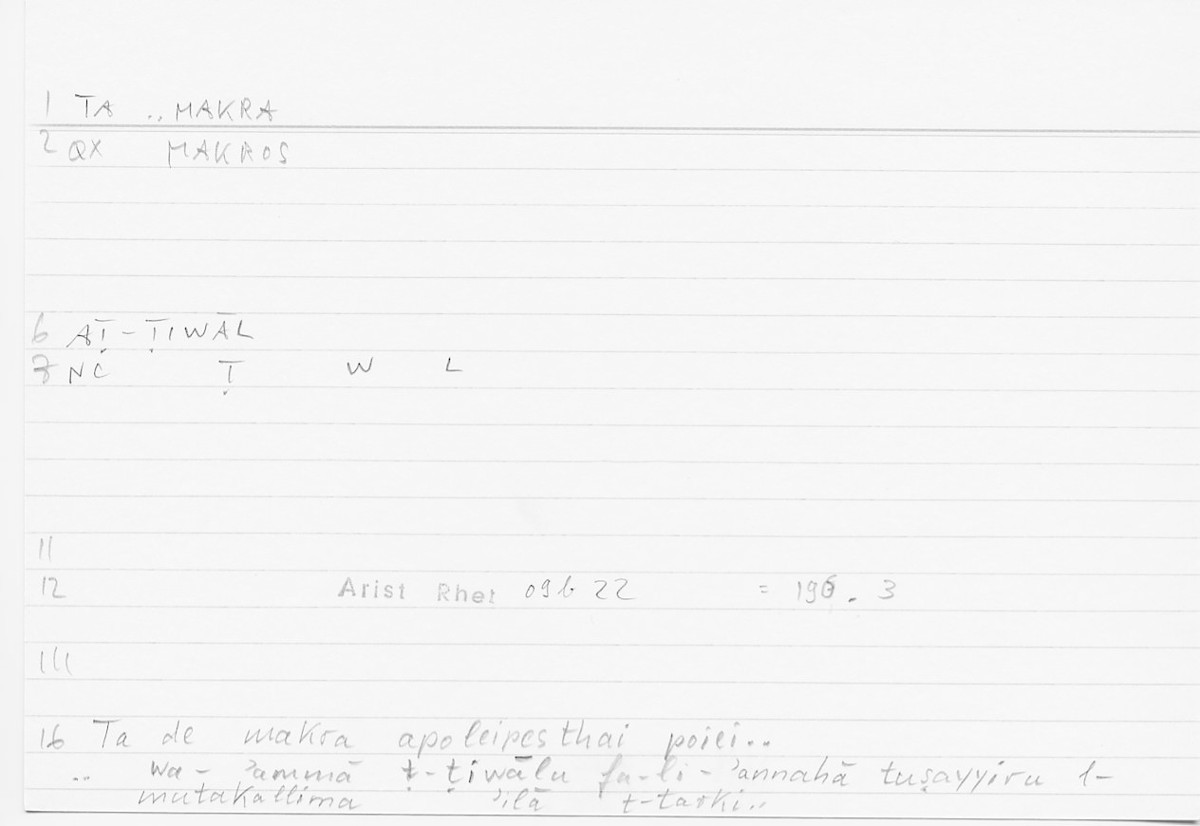 1 TA .. MAKRA
2 QX MAKROS
6 AṬ-ṬIWĀL
7 NC Ṭ W L
11
12 Arist Rhet 09b 22 = 196. 3
16 Ta de makra apoleipesthai poiei..
.. wa- ʾammā ṭ-ṭiwālu fa-li-ʾannahā tuṣayyiru l-
mutakallima ʾilā t-tarki..